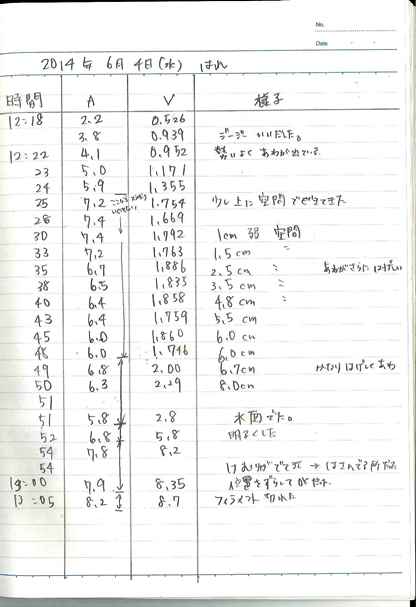 No.
Date
2014年 6月 4日(水) はれ
時間 A V 様子
12:18 2.2 0.526
3.8 0.939 ジージーいいだした。
12:22 4.1 0.952 勢いよくあわが出ている
23 5.0 1,171
24 5.9 1,355
25 7.2 1.754 少し上に空間できてきた
28 7.4 1.669
30 7.4 1,792 1cm 弱 空間
33 7.2 1,763 1.5cm 〃
35 6.7 1,886 2.5cm 〃 あわがさらにはげしい
38 6.5 1,835 3.5cm 〃
40 6.4 1,858 4.8cm 〃
43 6.4 1,759 5.5cm
45 6.0 1,860 6.0cm
48 6.0 1,746 6.0cm
49 6.8 2.00 6.7cm かなりはげしくあわ
50 6.3 2.29 8.0cm
51
51 5.8 2.8 水面でた。
52 6.8 5.8 明るくした
54 7.8 8.2
54 けむりがでて元 → はさんでる所
13:00 7.9 8.35 位置をずらして
13:05 8.2 8.7 フィラメント切れた